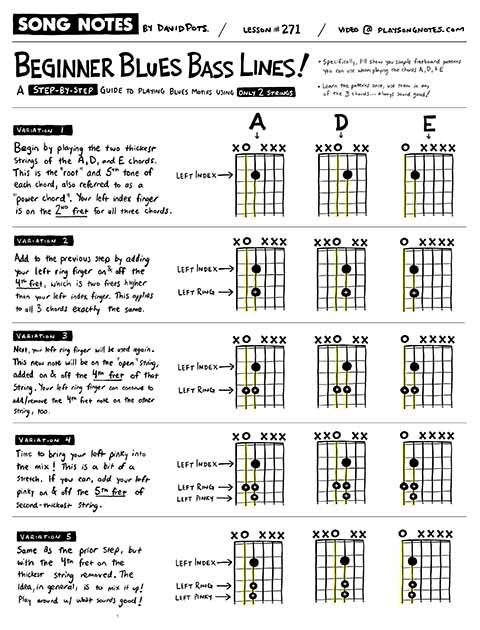 SONG NOTES BY DAVID POTS. / LESSON #271 / VIDEO @ PLAYSONGNOTES.COM
BEGINNER BLUES BASS LINES!
A STEP-BY-STEP GUIDE TO PLAYING BLUES MOTIFS USING ONLY 2 STRINGS
• Specifically, I'll show you simple fretboard patterns
you can use when playing the chords A, D, & E
• Learn the patterns once, use them in any
of the 3 chords... Always sound good!
A D E
VARIATION 1
Begin by playing the two thickest
strings of the A, D, and E chords.
This is the "root" and 5th tone of
each chord, also referred to as a
"power chord". Your left index finger
is on the 2ND fret for all three chords.
XO XXX XXO XX O XXXX
LEFT INDEX→
VARIATION 2
Add to the previous step by adding
your left ring finger on & off the
4th fret, which is two frets higher
than your left index finger. This applies
to all 3 chords exactly the same.
XO XXX XXO XX O XXXX
LEFT INDEX→
LEFT RING→
VARIATION 3
Next, your left ring finger will be used again.
This new note will be on the "open" string,
added on & off the 4th fret of that
string. Your left ring finger can continue to
add/remove the 4th fret note on the other
string, too.
XO XXX XXO XX O XXXX
LEFT INDEX→
LEFT RING→
VARIATION 4
Time to bring your left pinky into
the mix! This is a bit of a
stretch. If you can, add your left
pinky on & off the 5th fret of
second-thickest string.
XO XXX XXO XX O XXXX
LEFT INDEX→
LEFT RING→
LEFT PINKY→
VARIATION 5
Same as the prior step, but
with the 4th fret on the
thickest string removed. The
idea, in general, is to mix it up!
Play around w/ what sounds good!
XO XXX XXO XX O XXXX
LEFT INDEX→
LEFT RING→
LEFT PINKY→